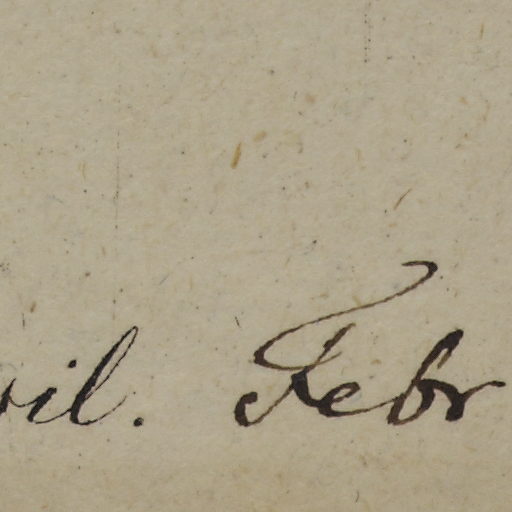 il. Febr